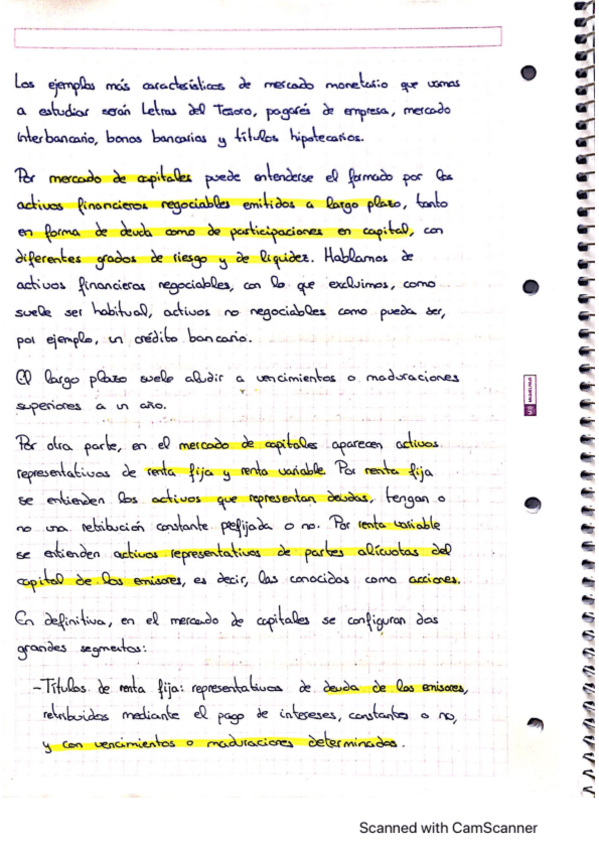 Los ejemplos más característicos de mercado monetario que vamos
a estudiar serán Letras del Tesoro, pagarés de empresa, mercado
interbancario, bonos bancarios y títulos hipotecarios.
Por mercado de capitales puede entenderse el formado por los
activos financieros negociables emitidos a largo plazo, tanto
en forma de deuda como de participaciones en capital, con
diferentes grados de riesgo y de liquidez. Hablamos de
activos financieros negociables, con lo que excluimos, como
suele ser habitual, activos no negociables como pueda ser,
por ejemplo, un crédito bancario.
El largo plazo suele aludir a vencimientos o maduraciones
superiores a un año.
Por otra parte, en el mercado de capitales aparecen activos
representativos de renta fija y renta variable. Por renta fija
se entienden los activos que representan deudas, tengan o
no una retribución constante prefijada o no. Por renta variable
se entienden activos representativos de partes alícuotas del
capital de los emisores, es decir, las conocidas como acciones.
En definitiva, en el mercado de capitales se configuran dos
grandes segmentos:
-Títulos de renta fija: representativos de deuda de los emisores,
retribuidos mediante el pago de intereses, constantes o no,
y con vencimientos o maduraciones determinados.
Scanned with CamScanner